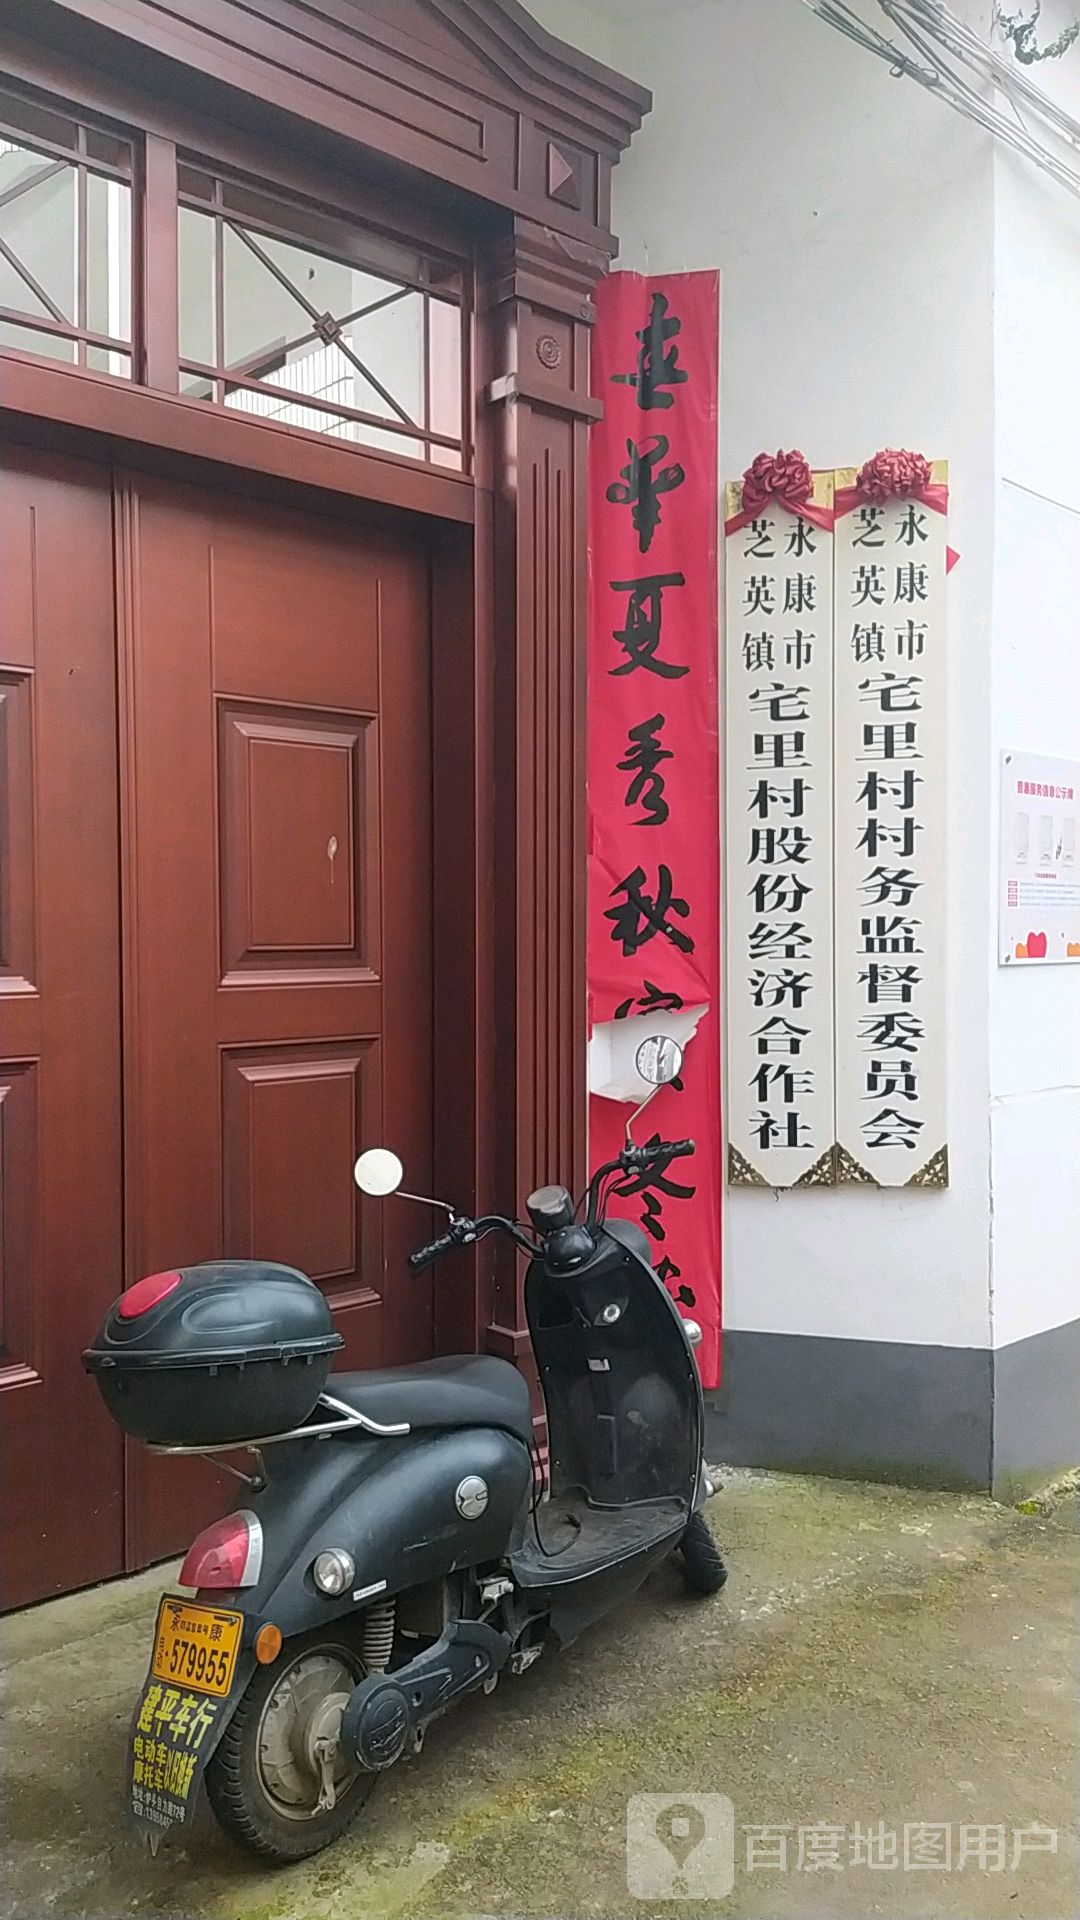 春華夏秀秋實冬
永康市
芝英镇
宅里村股份经济合作社
永康市
芝英镇
宅里村村务监督委员会
普惠服务信息公示牌
永 康
579955
建平车行
电动车
摩托车
以旧换新
百度地图用户